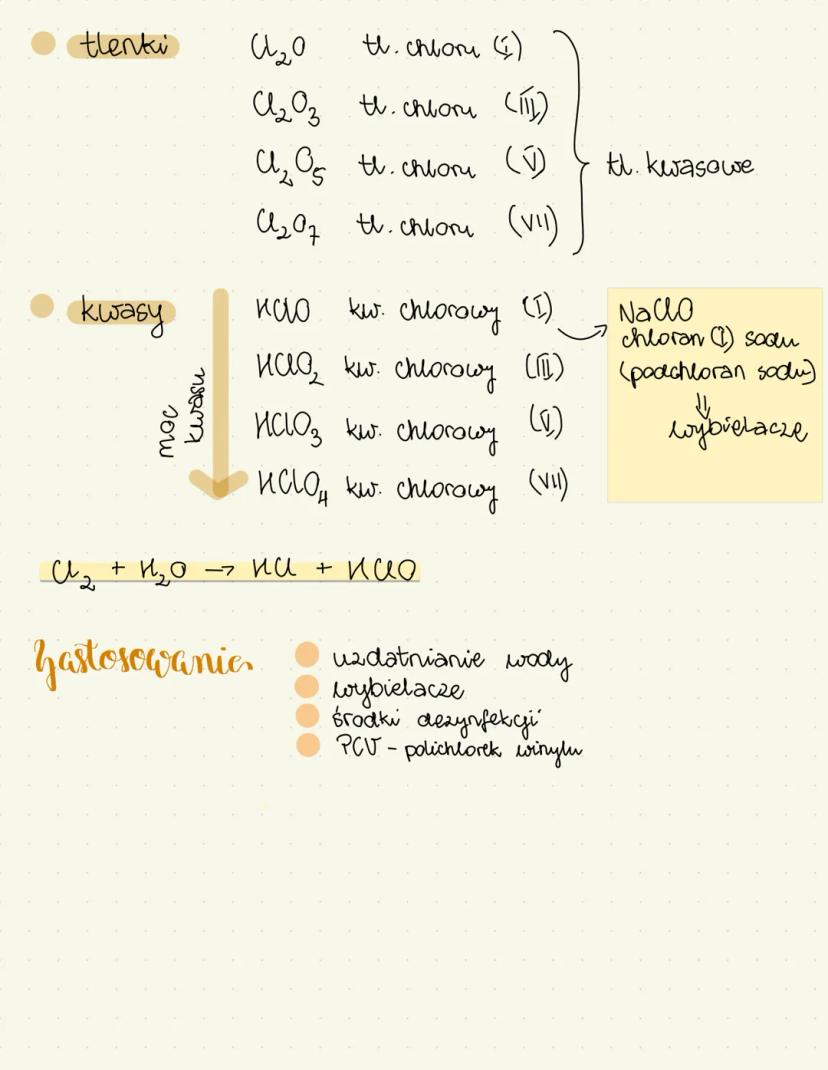 tlenki Cl₂O tl. chloru (I)
Cl₂O₃ tl. chloru (III)
Cl₂O₅ tl. chloru (V)
Cl₂O₇ tl. chloru (VII)
tl. kwasowe
kwasy HClO kw. chlorowy (I)
HClO₂ kw. chlorowy (III)
HClO₃ kw. chlorowy (V)
HClO₄ kw. chlorowy (VII)
moc
kwasu
NaClO
chloran (I) sodu
(podchloran sodu)
⇓
wybielacze
Cl₂ + H₂O → HCl + HClO
Zastosowanie
uzdatnianie wody
wybielacze
środki dezynfekcji
PCV - polichlorek winylu